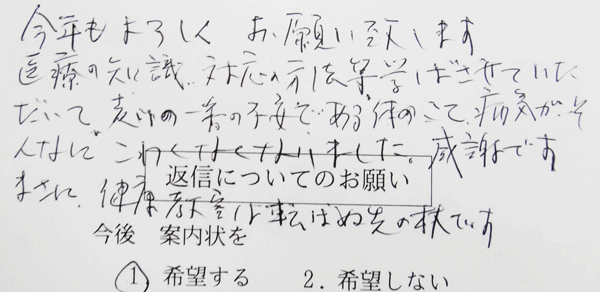 今年もよろしく お願い致します
医療の知識、対応の方法等学ばさせていた
だいて 老いの一番の不安である体のこと、病気が、そ
んなに こわくなくなりました。感謝です
返信についてのお願い
まさに、健康教室は 転ばぬ先の杖です
今後 案内状を
① 希望する 2. 希望しない